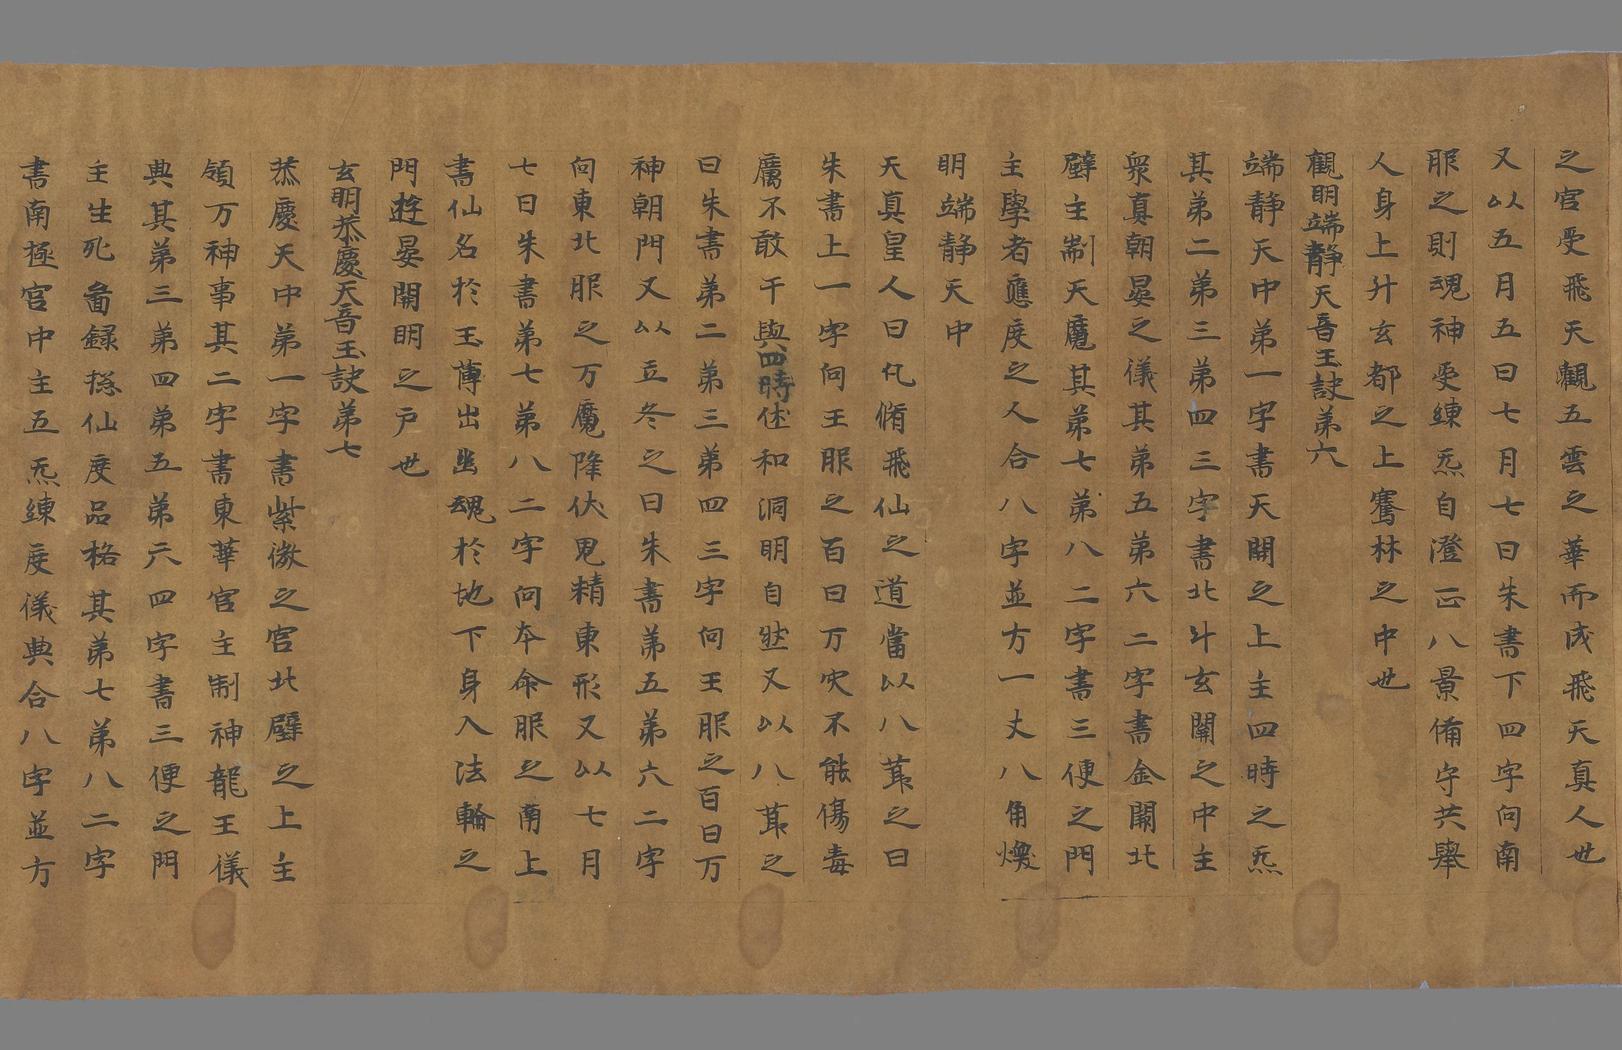 之官受飛天觀五雲之華而成飛天真人也
又以五月五日七月七日朱書下四字向南
服之則魂神受練炁自澄正八景俻守共舉
人身上升玄都之上騫林之中也
觀明端靜天音玉訣弟六
端靜天中弟一字書天關之上主四時之炁
其弟二弟三弟四三字書北斗玄闕之中主
衆真朝晏之儀其弟五弟六二字書金闕北
壁主制天魔其弟七弟八二字書三便之門
主學者應度之人合八字並方一丈八角煥
明端靜天中
天真皇人曰凡脩飛仙之道當以八節之日
朱書上一字向王服之百日万灾不能傷毒
厲不敢干與四時俱和洞明自然又以八節之
日朱書弟二弟三弟四三字向王服之百日万
神朝門又以立冬之日朱書弟五弟六二字
向東北服之万魔降伏鬼精束形又以七月
七日朱書弟七弟八二字向本命服之南上
書仙名於玉薄出幽魂於地下身入法輪之
門遊晏開明之戶也
玄明恭慶天音玉訣弟七
恭慶天中弟一字書紫微之宮北壁之上主
領万神事其二字書東華官主制神龍王儀
典其弟三弟四弟五弟六四字書三便之門
主生死啚錄揔仙度品格其弟七弟八二字
書南極宮中主五炁練度儀典合八字並方